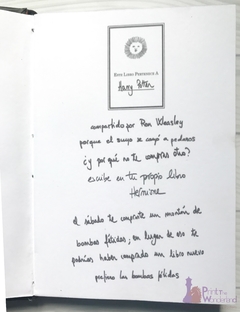 ESTE LIBRO PERTENECE A
Harry Potter
compartido por Ron Weasley
porque el suyo se cayó a pedazos
¿y por qué no te compras otro?
escribe en tu propio libro
Hermione
el sábado te compraste un montón de
bombas fétidas, en lugar de eso te
podrías haber comprado un libro nuevo
prefiero las bombas fétidas
Wonderland